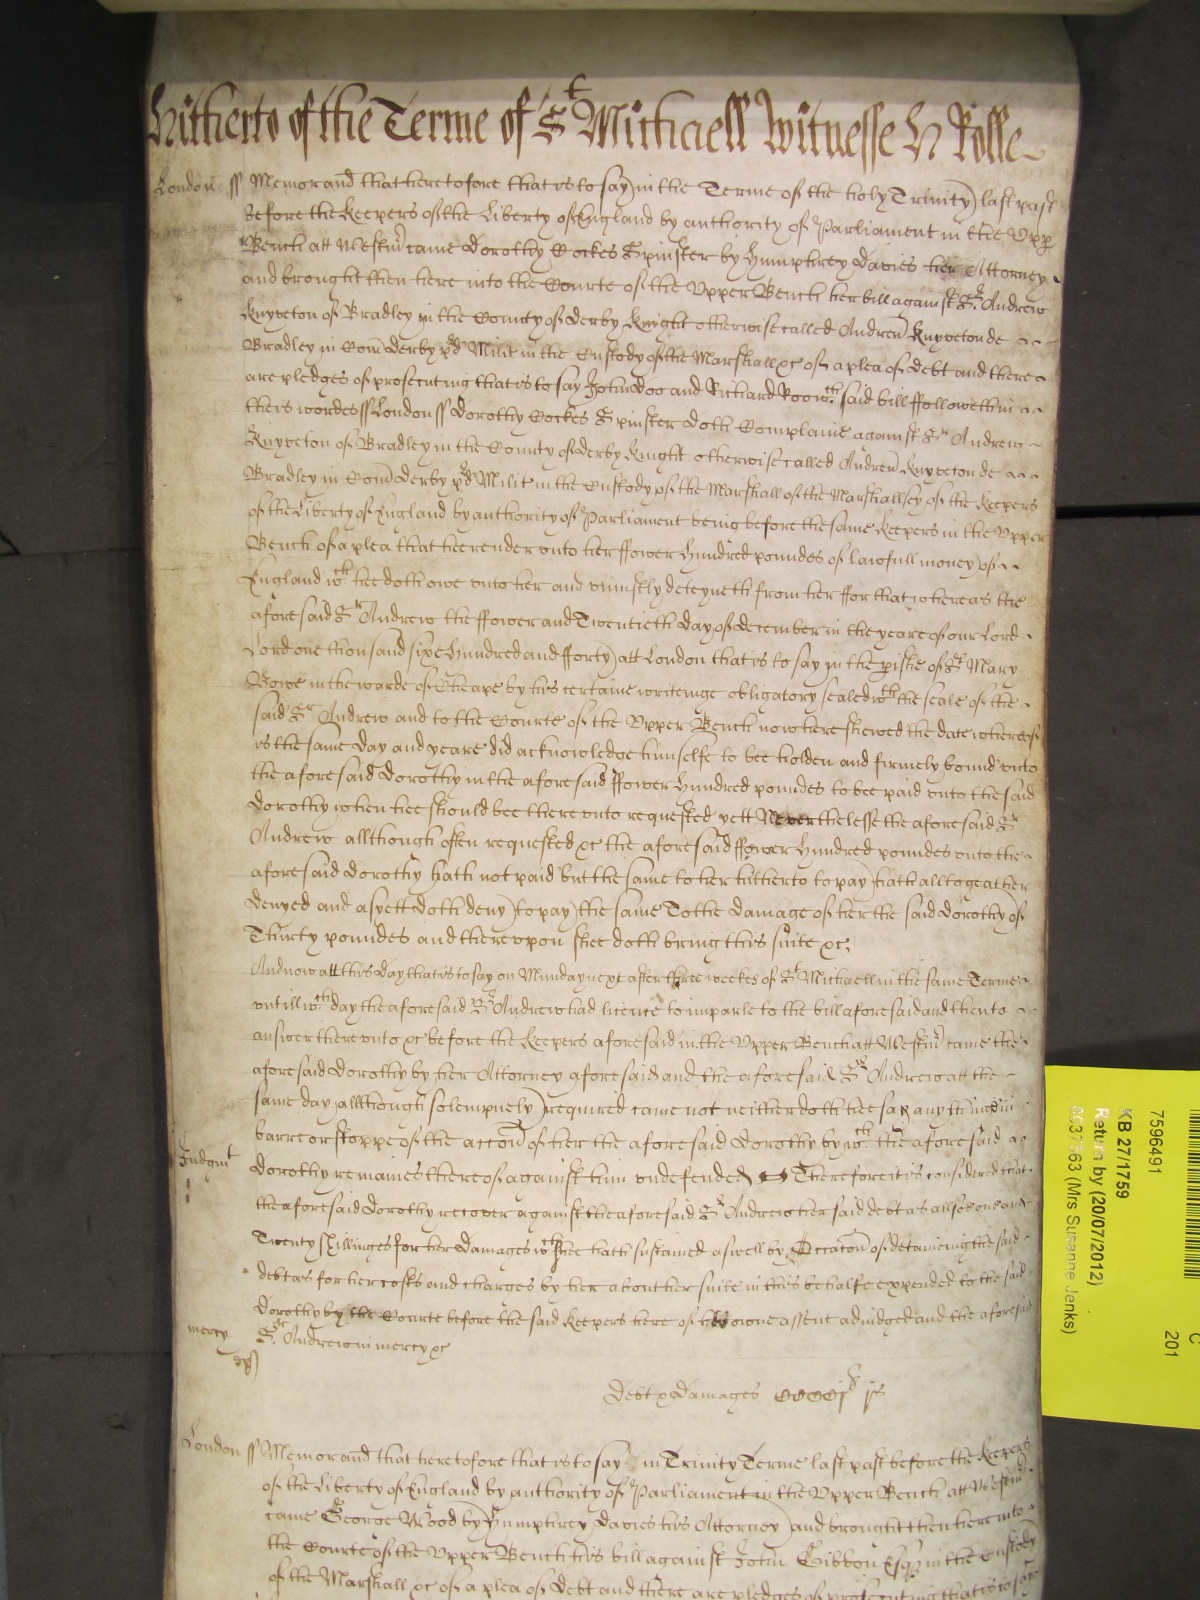 Hitherto of the Terme of St Michaell Witnesse H Rolle
London ss Memorand that heretofore that is to say in the Terme of the holy Trinity last past
before the Keepers of the Liberty of England by authority of Parliament in the Upp
Bench att Westm came Dorothy Cockes Spinster by Humphrey Davies her Attorney
and brought then here into the Courte of the Upper Bench her bill against Sr Andrew
Knyveton of Bradley in the County of Derby Knight otherwise called Andrew Knyveton de
Bradley in Com Derby pd Milit in the Custody of the Marshall &c of a plea of debt and there
are pledges of prosecuting that is to say John Doo and Richard Roo wch said bill followeth in
theis wordes ss London ss Dorothy Cockes Spinster doth Complaine against Sr Andrew
Knyveton of Bradley in the County of Derby Knight otherwise called Andrew Knyveton de
Bradley in Com Derby pd Milit in the Custody of the Marshall of the Marshallsey of the Keepers
of the Liberty of England by authority of Parliament being before the same Keepers in the Upper
Bench of a plea that hee render unto her ffower Hundred poundes of lawfull money of
England wch hee doth owe unto her and uniustly deteyneth from her ffor that whereas the
aforesaid Sr Andrew the ffower and Twentieth day of December in the yeare of our Lord
Lord one thousand sixe Hundred and fforty att London that is to say in the pishe of St Mary
Bowe in the warde of Cheape by his certaine writeinge obligatory sealed wth the seale of the
said Sr Andrew and to the Courte of the Upper Bench now here shewed the date whereof
is the same day and yeare did acknowledge himselfe to bee holden and firmely bound unto
the aforesaid Dorothy in the aforesaid ffower Hundred poundes to bee paid unto the said
Dorothy when hee should bee there unto requested yett Neverthelesse the aforesaid Sr
Andrew allthough often requested &c the aforesaid ffower Hundred poundes unto the
aforesaid Dorothy Hath not paid but the same to her hitherto to pay hath alltogeather
denyed and as yett doth deny to pay the same To the damage of her the said Dorothy of
Thirty poundes and thereupon shee doth bring this suite &c
And now att this day that is to say on Munday next after three weekes of St Michaell in the same Terme
untill wch day the aforesaid Sr Andrew had licence to imparle to the bill aforesaid and then to
answer there unto &c before the Keepers aforesaid in the Upper Bench att Westm came the
aforesaid Dorothy by her Attorney aforesaid and the aforesaid Sr Andrew att the
same day allthough solempnely required came not neither doth hee say any thinge in
barre or stoppe of the accon of her the aforesaid Dorothy by wch the aforesaid
Judgmt Dorothy remaines thereof against him undefended Therefore it is considered that
the aforesaid Dorothy recover against the aforesaid Sr Andrew her said debt as allsoe one and
Twenty shillinges for her damages wch shee hath susteined aswell by Occacon of detaineing the said
debt as for her costs and charges by her about her suite in this behalfe expended to the said
Dorothy by the Courte before the said Keepers here of her owne assent adiudged and the aforesaid
mercy Sr Andrew in mercy &c
Debt & damages CCCCj li js
London ss Memorand that heretofore that is to say in Trinity Terme last past before the Keepers
of the Liberty of England by authority of Parliament in the Upper Bench att Westm
came George Wood by Humphrey Davies his Attorney and brought then here into
the Courte of the Upper Bench his bill against John Gibbon Esq in the Custody
of the Marshall &c of a plea of Debt and there are pledges of prosecuting that is to say
7596491
KB 27/1759
Return by (20/07/2012)
(Mrs Susanne Jenks)
C
201